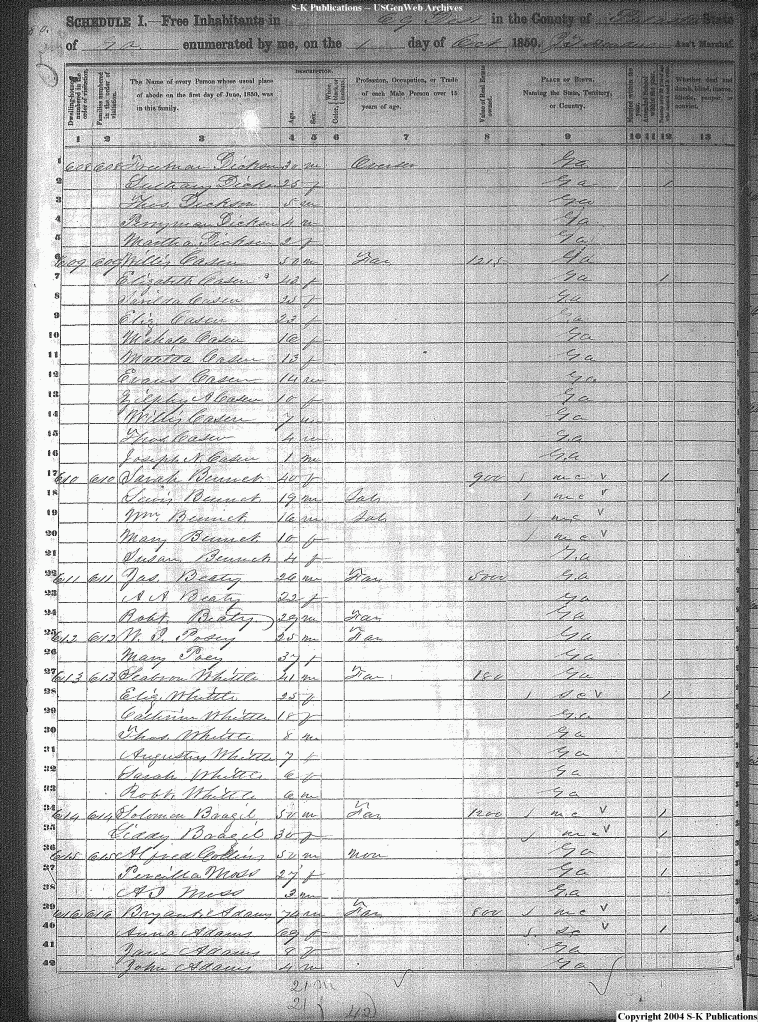 S-K Publications -- USGenWeb Archives
SCHEDULE I.- Free Inhabitants in in the County of Pulaski State
of Ga enumerated by me, on the 1 day of Oct 1850. Ass't Marshal.
Dwelling-houses numbered in the order of visitation.
Families numbered in the order of visitation.
The Name of every Person whose usual place of abode on the first day of June, 1850, was in this family.
DESCRIPTION.
Age.
Sex.
Color
Profession, Occupation, or Trade of each Male Person over 15 years of age.
Value of Real Estate owned.
PLACE OF BIRTH. Naming the State, Territory, or Country.
Married within the year.
Whether deaf and dumb, blind, insane, idiotic, pauper, or convict.
1 2 3 4 5 6 7 8 9 10 11 12 13
1 608 608 Dickson 30 m Oversee Ga
2 Dickson 25 f Ga 1
3 Thos Dickson 5 m Ga
4 Perryman Dickson 4 m Ga
5 Martha Dickson 2 f Ga
6 609 609 Willis Casen 50 m Far 1215 Ga
7 Elizabeth Casen 43 f Ga 1
8 Casen 25 f Ga
9 Eliz Casen 23 f Ga
10 Mahala Casen 16 f Ga
11 Matilda Casen 13 f Ga
12 Evans Casen 14 m Ga
13 Zilphy A Casen 10 f Ga
14 Willis Casen 7 m Ga
15 Thos Casen 4 m Ga
16 Joseph N. Casen 1 m Ga
17 610 610 Sarah Bennet 40 f 900 n c v 1
18 Lewis Bennet 19 m Lab n c v
19 Wm. Bennet 16 m Lab n c v
20 Mary Bennet 10 f n c v
21 Susan Bennet 4 f Ga
22 611 611 Jas. Beaty 26 m Far 5000 Ga
23 A A Beaty 22 f Ga
24 Robt. Beaty 29 m Far Ga
25 612 612 W. Posey 25 m Far Ga
26 Mary Posy 37 f Ga
27 613 613 Seaborn Whittle 41 m Far 180 Ga
28 Eliz Whittle 25 f s c v 1
29 Catherine Whittle 18 f Ga
30 Thos. Whittle 8 m Ga
31 Augustus Whittle 7 f Ga
32 Sarah Whittle 6 f Ga
33 Robt Whittle 6 m Ga
34 614 614 Solomon Brazil 50 m Far 1200 n c v 1
35 Liddy Brazil 30 f n c v 1
36 615 615 Alfred Collins 50 m non Ga
37 Percilla Moss 27 f Ga 1
38 Moss 2 m Ga
39 616 616 Bryant Adams 74 m Far 800 n c v
40 Anna Adams 69 f s c v 1
41 Jane Adams 9 f Ga
42 John Adams 4 m Ga
21 m
21 f
42
Copyright 2004 S-K Publications